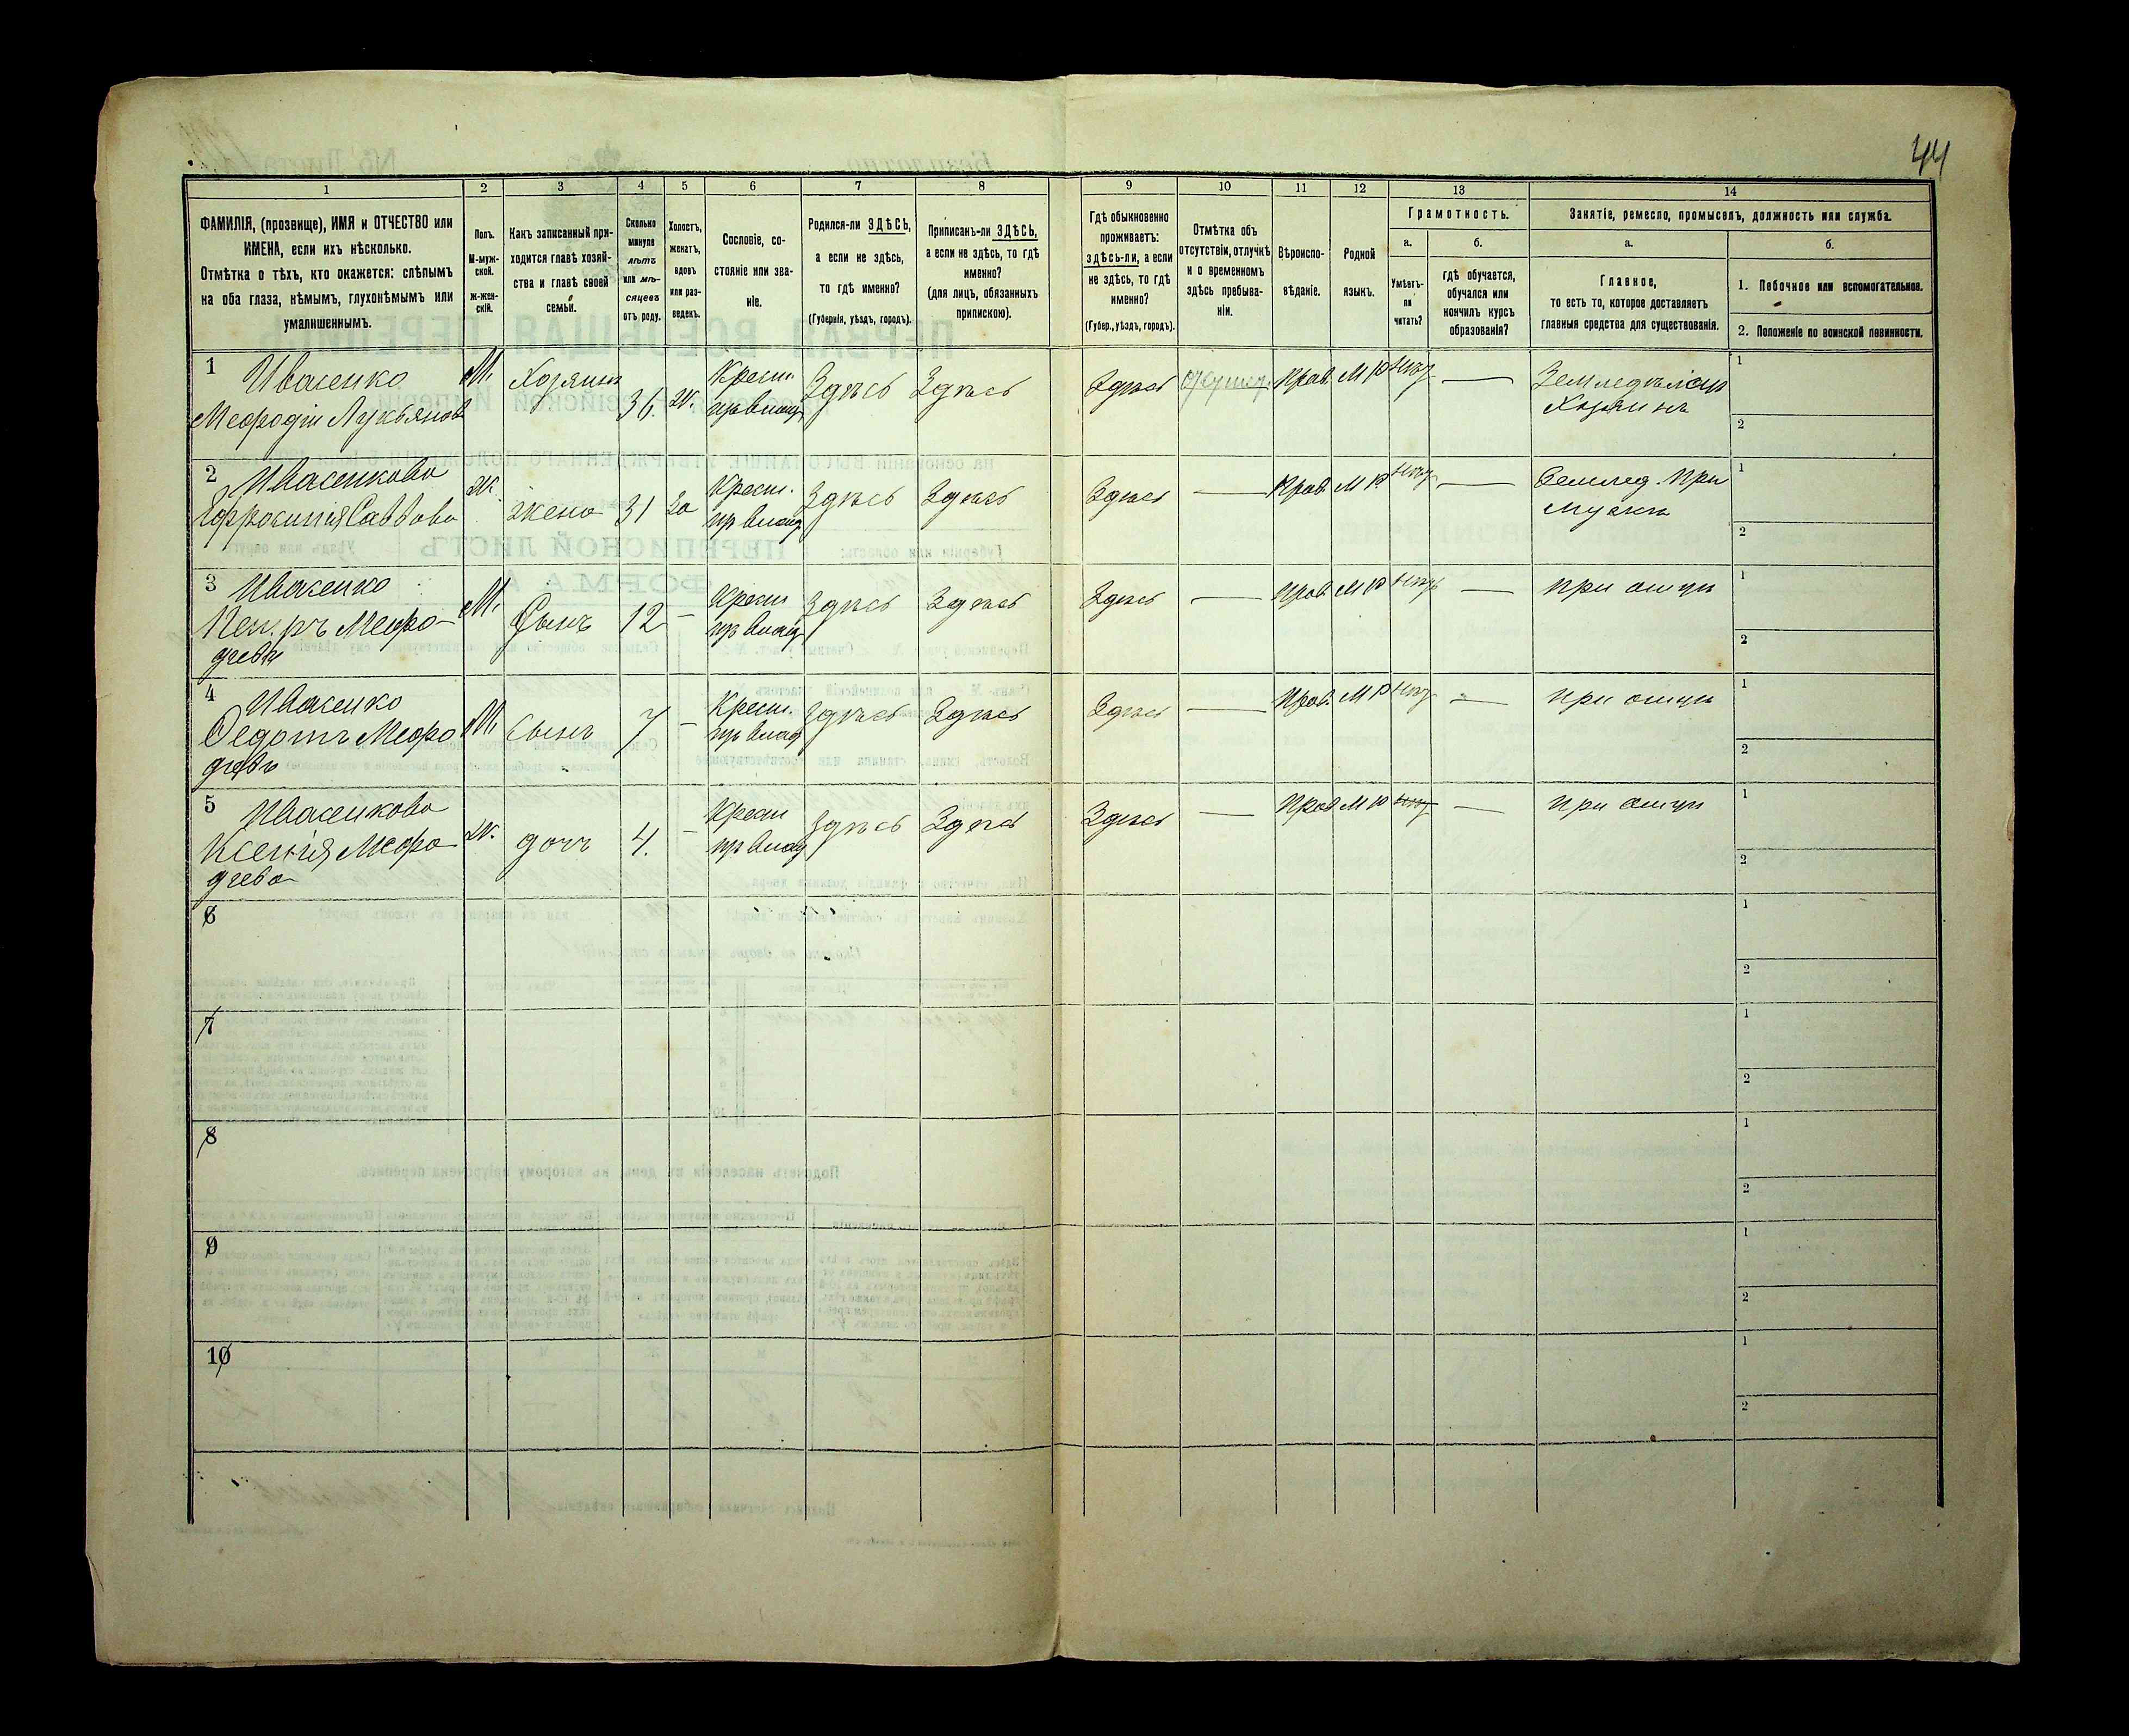 44
1 2 3 4 5 6 7 8 9 10 11 12 13 14
ФАМИЛІЯ, (прозвище), ИМЯ и ОТЧЕСТВО или
ИМЕНА, если ихъ нѣсколько.
Отмѣтка о тѣхъ, кто окажется: слѣпымъ
на оба глаза, нѣмымъ, глухонѣмымъ или
умалишеннымъ.
Полъ.
М-муж-
ской.
ж-жен-
скій.
Какъ записанный при-
ходится главѣ хозяй-
ства и главѣ своей
семьи.
Сколько
минуло
лѣтъ
или мѣ-
сяцевъ
отъ роду.
Холостъ,
женатъ,
вдовъ
или раз-
веденъ.
Сословіе, со-
стояніе или зва-
ніе.
Родился-ли ЗДѢСЬ,
а если не здѣсь,
то гдѣ именно?
(Губернія, уѣздъ, городъ).
Приписанъ-ли ЗДѢСЬ,
а если не здѣсь, то гдѣ
именно?
(для лицъ, обязанныхъ
припискою).
Гдѣ обыкновенно
проживаетъ:
здѣсь-ли, а если
не здѣсь, то гдѣ
именно?
(Губер., уѣздъ, городъ).
Отмѣтка объ
отсутствіи, отлучкѣ
и о временномъ
здѣсь пребыва-
ніи.
Вѣроиспо-
вѣданіе.
Родной
языкъ.
Грамотность.
а.
Умѣетъ-
ли
читать?
б.
гдѣ обучается,
обучался или
кончилъ курсъ
образованія?
Занятіе, ремесло, промыселъ, должность или служба.
а.
Главное,
то есть то, которое доставляетъ
главныя средства для существованія.
б.
1. Побочное или вспомогательное.
2. Положеніе по воинской повинности.
1 Ивасенко М. Хозяинъ 36. Ж. Крест. Здѣсь Здѣсь Здѣсь Прав. М Р Нѣтъ — 1
Мефодій Лукьяновъ Хозяинъ 2
2 Ивасенкова Ж. жена 31 За Крест. Здѣсь Здѣсь Здѣсь — Прав. М Р. Нѣтъ — Землед. При 1
Ефросинія Саввова мужѣ 2
3 Ивасенко М. Сынъ 12 — Крест Здѣсь Здѣсь Здѣсь — Прав. М Р Нѣтъ — при отцѣ 1
Петръ Мефо-
діевъ 2
4 Ивасенко М. Сынъ 7 — Крест. Здѣсь Здѣсь Здѣсь — Прав. М Р Нѣтъ — при отцѣ 1
Федотъ Мефо
діевъ 2
5 Ивасенкова Ж. дочь 4. — Крест Здѣсь Здѣсь Здѣсь — Прав М Р Нѣтъ — при отцѣ 1
Ксенія Мефо
діева 2
6 1
2
7 1
2
8 1
2
9 1
2
10 1
2